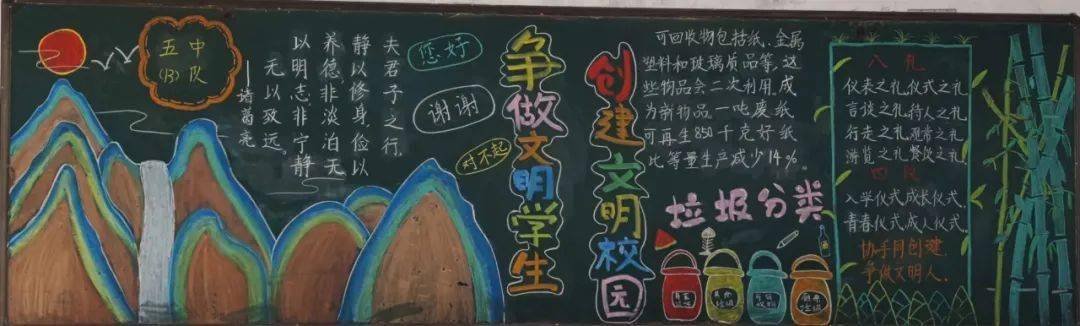 五中
(13)队
夫君子之行,
静以修身,俭以
养德,非淡泊无
以明志,非宁静
无以致远。
——诸葛亮
您好
谢谢
对不起
争做文明学生
创建文明校园
可回收物包括纸、金属
塑料和玻璃质品等,这
些物品会二次利用,成
为新物品。一吨废纸
可再生850千克好纸
比等量生产减少14%。
垃圾分类
八礼
仪表之礼,仪式之礼
言谈之礼,待人之礼
行走之礼,观赏之礼
游览之礼,餐饮之礼
四仪
入学仪式,成长仪式,
青春仪式,成人仪式,
协手同创建
争做文明人、